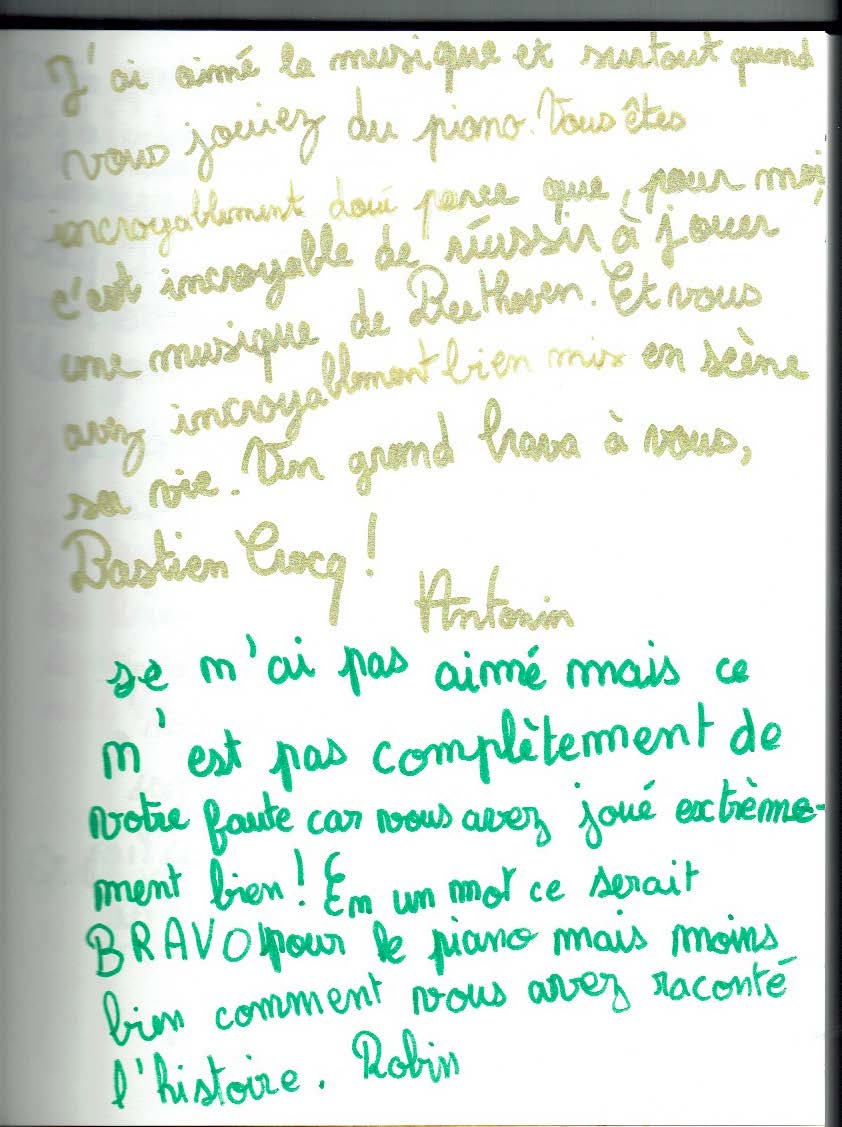 J'ai aimé la musique et surtout quand
vous jouiez du piano. Vous êtes
incroyablement doué parce que, pour moi,
c'est incroyable de réussir à jouer
une musique de Beethoven. Et vous
avez incroyablement bien mis en scène
sa vie. Un grand bravo à vous,
Bastien Crocq !
Antonin
se n'ai pas aimé mais ce
n'est pas complètement de
votre faute car vous avez joué extrème-
ment bien ! En un mot ce serait
BRAVO pour le piano mais moins
bien comment vous avez raconté
l'histoire. Robin